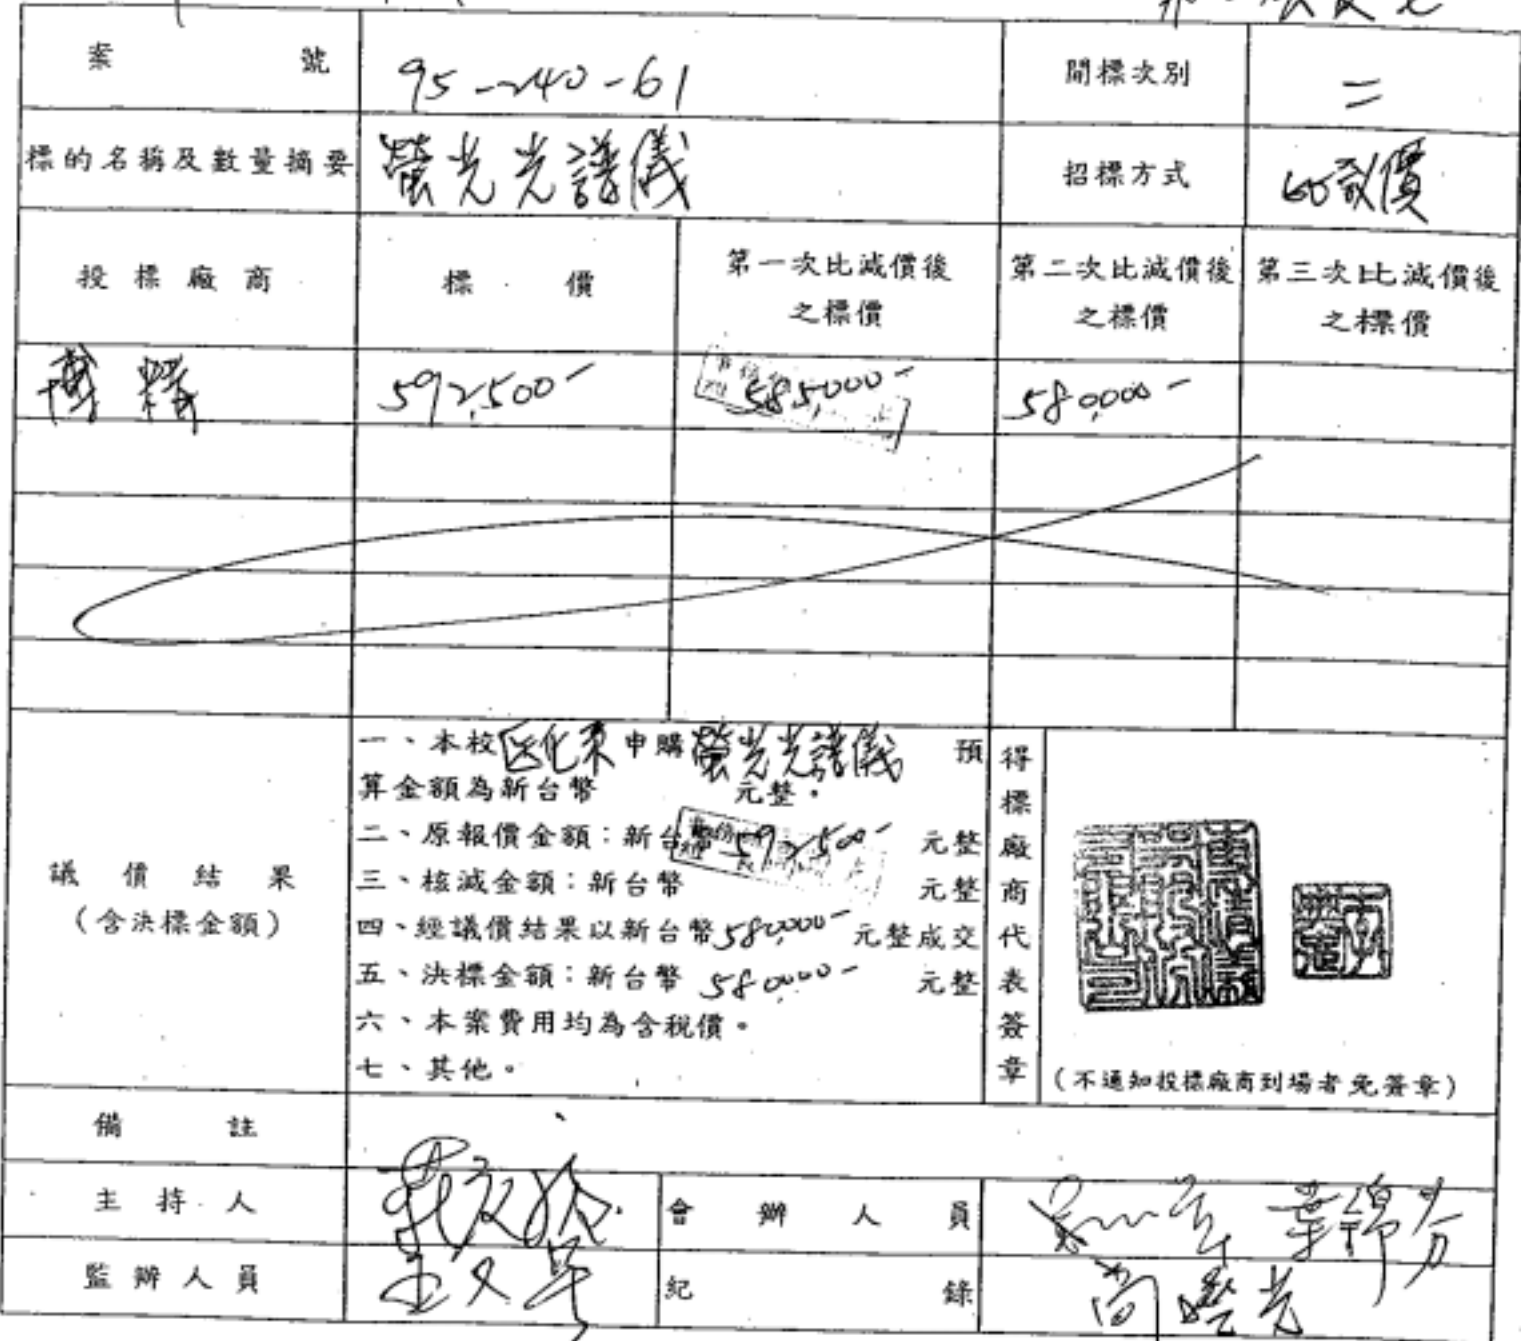 案號 95-240-61 開標次別 二
標的名稱及數量摘要 螢光光譜儀 招標方式 比議價
投標廠商 標價 第一次比減價後之標價 第二次比減價後之標價 第三次比減價後之標價
博精 592,500- 585,000- 580,000-
議價結果
(含決標金額)
一、本校醫化系申購螢光光譜儀 預
算金額為新台幣 元整。
二、原報價金額：新台幣592,500- 元整
三、核減金額：新台幣 元整
四、經議價結果以新台幣580,000-元整成交
五、決標金額：新台幣 580,000- 元整
六、本案費用均為含稅價。
七、其他。
得標廠商代表簽章
(不通知投標廠商到場者免簽章)
備註
主持人
會辦人員 葉錦芬
監辦人員
紀錄